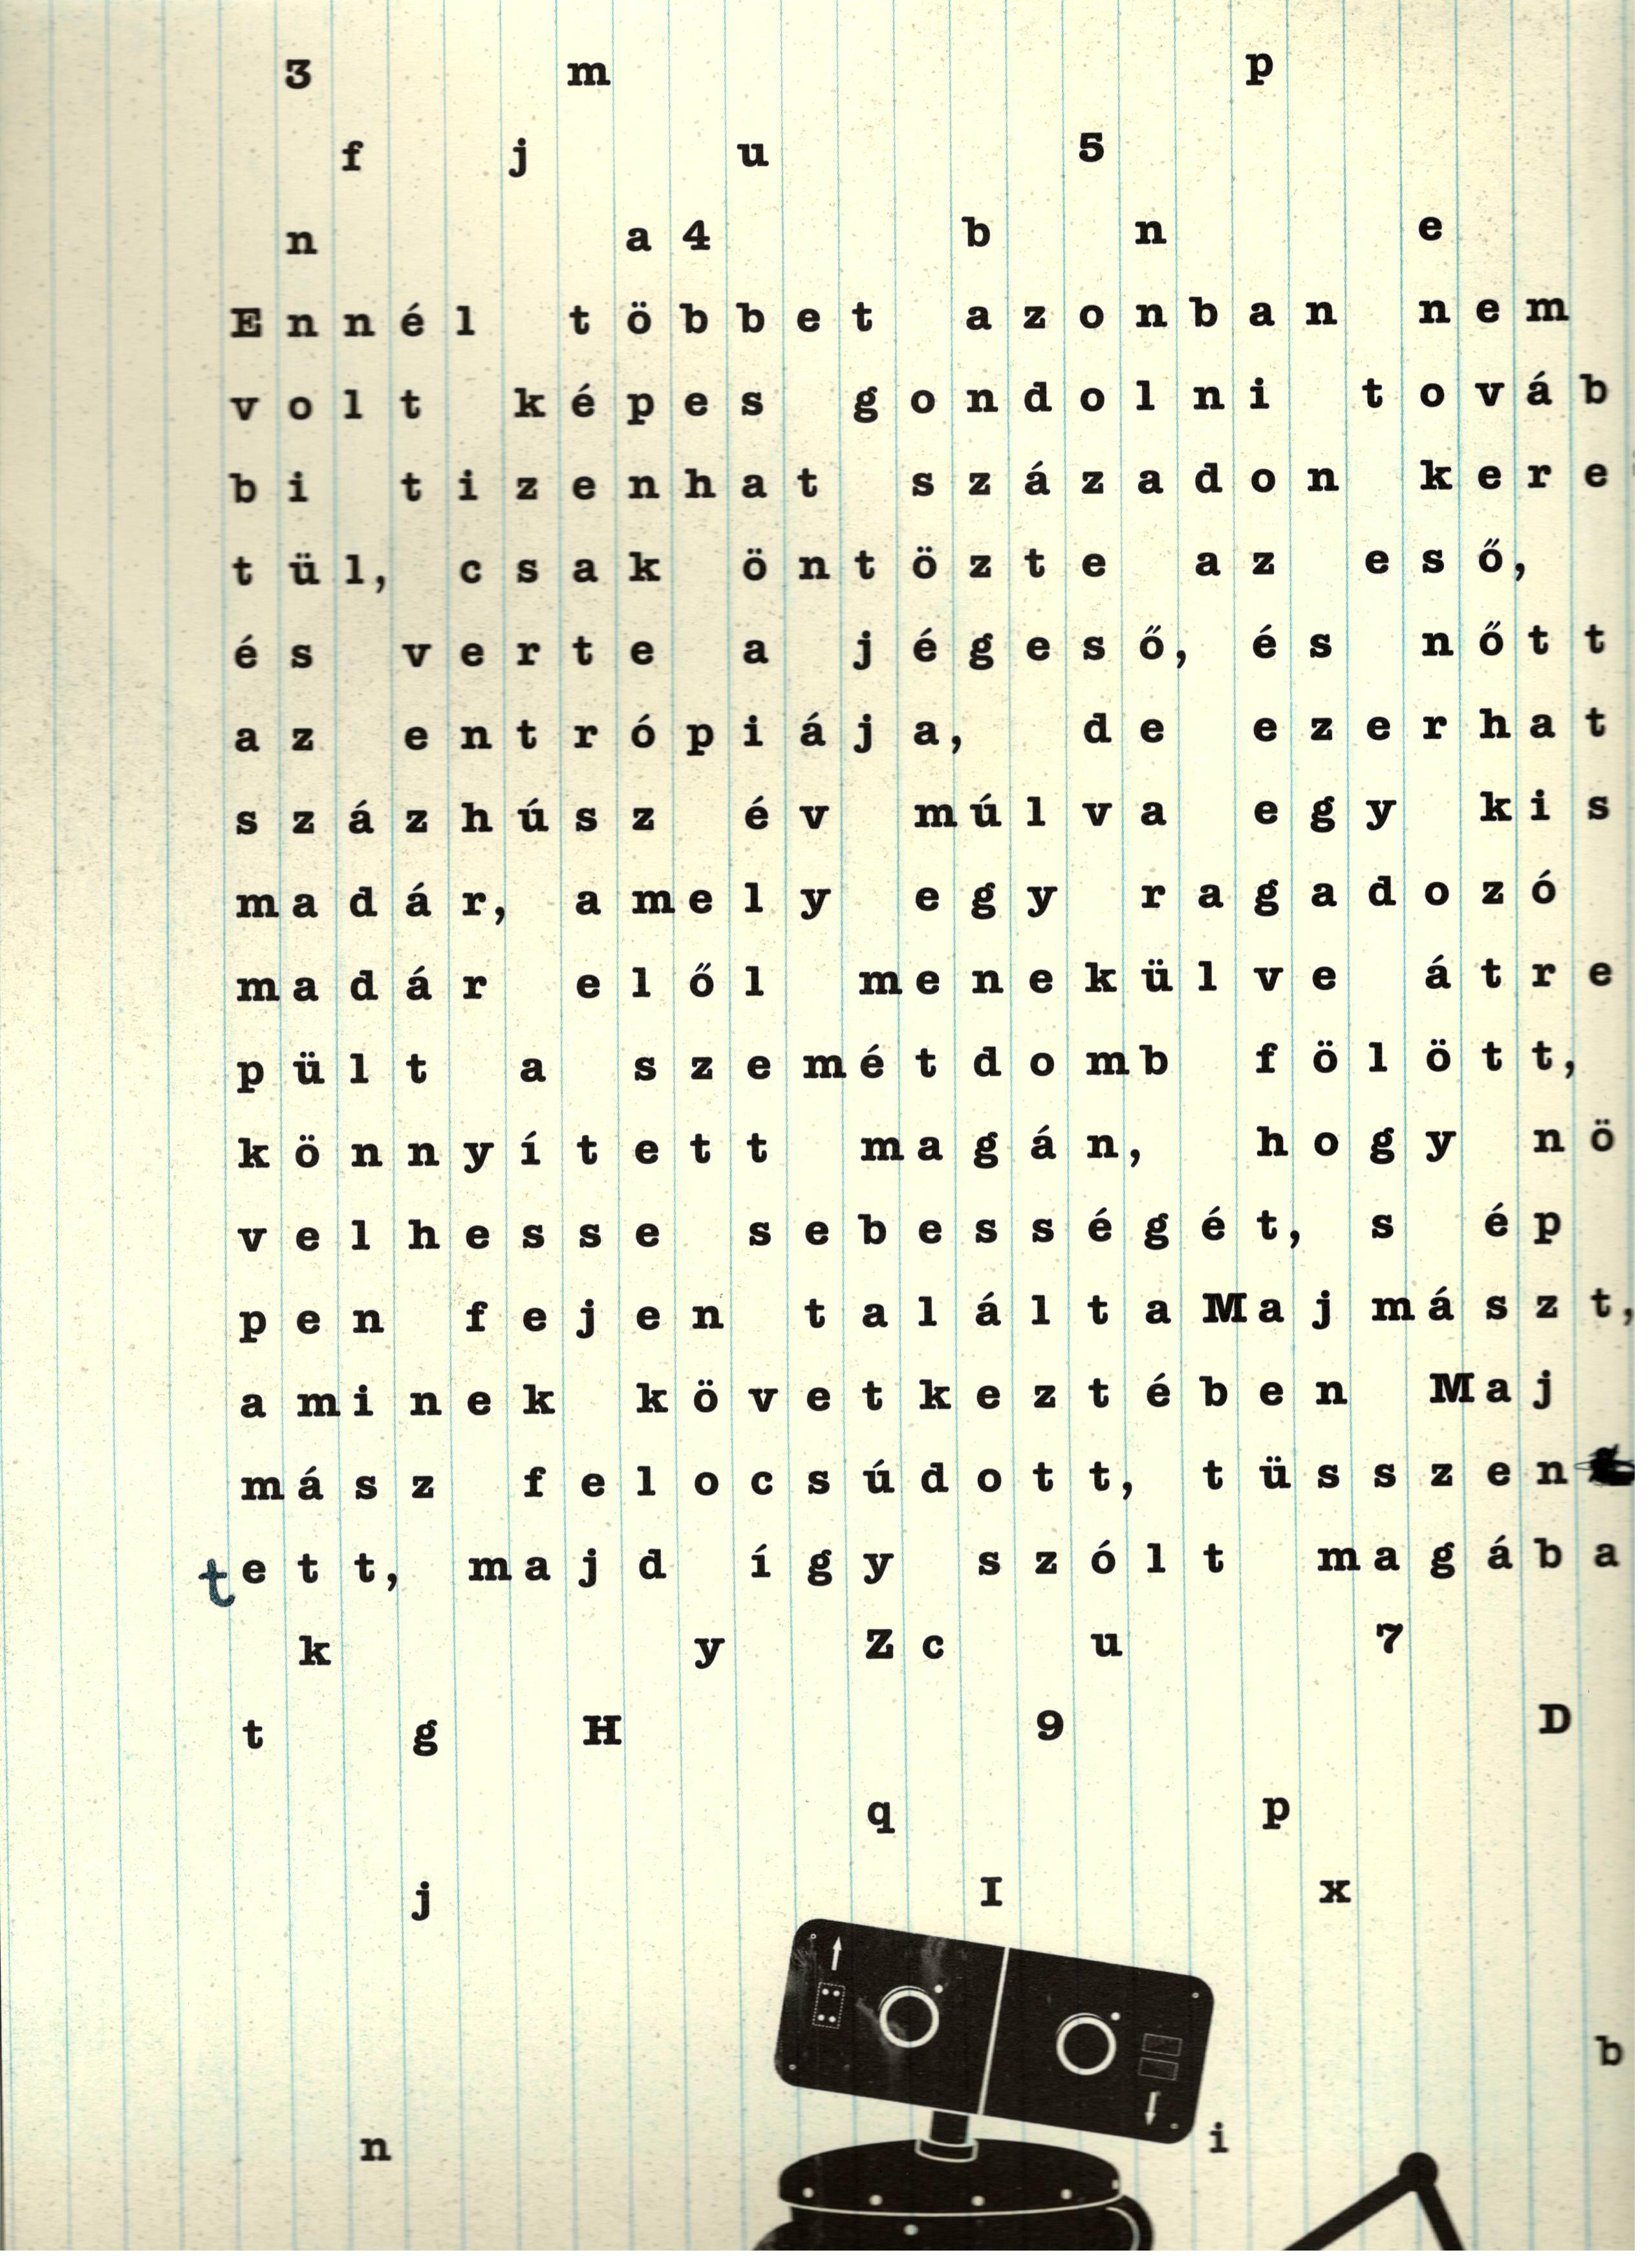 3 m p
f j u 5
n a 4 b n e
Ennél többet azonban nem
volt képes gondolni továb
bi tizenhat századon kere
tül, csak öntözte az eső,
és verte a jégeső, és nőtt
az entrópiája, de ezerhat
százhúsz év múlva egy kis
madár, amely egy ragadozó
madár elől menekülve átre
pült a szemétdomb fölött,
könnyített magán, hogy nö
velhesse sebességét, s ép
pen fejen találta Majmászt,
aminek következtében Maj
mász felocsúdott, tüsszen
tett, majd így szólt magába
k y Z c u 7
t g H 9 D
q p
j I x
b
n i